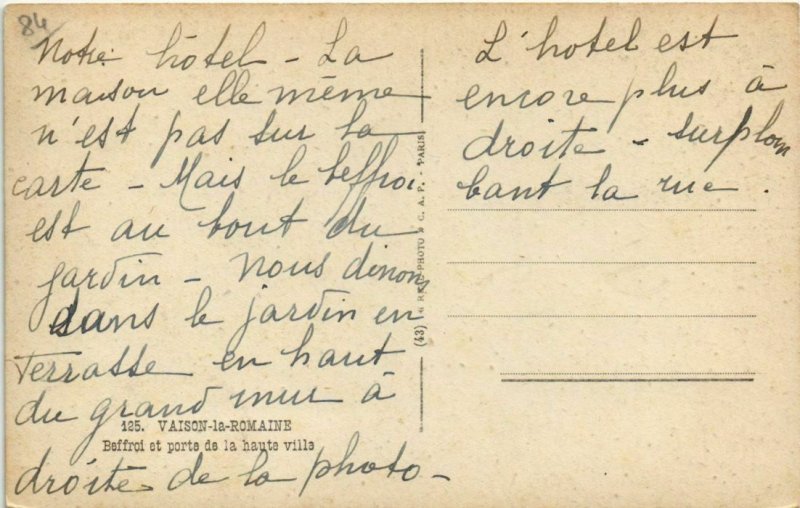 84
Notre hôtel - La
maison elle même
n'est pas sur la
carte - Mais le beffroi
est au bout du
jardin - Nous dinons
dans le jardin en
Terrasse en haut
du grand mur à
125. VAISON-la-ROMAINE
Beffroi et porte de la haute ville
droite de la photo -
(43) PHOTO C. A. P. - PARIS
L'hotel est
encore plus à
droite - surplom
bant la rue.